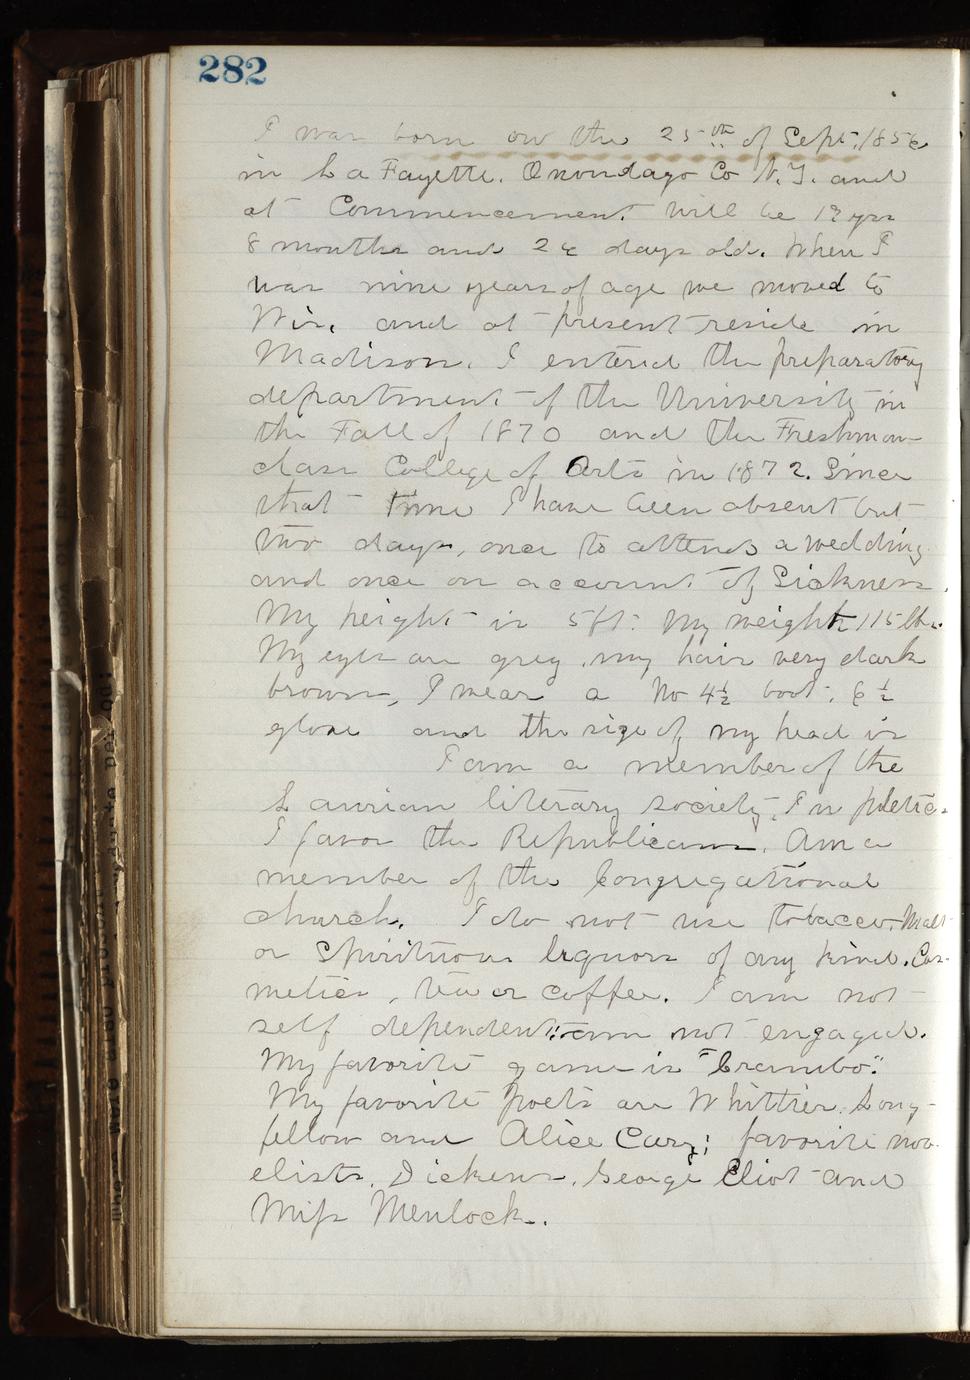 282
I was born on the 25th of Sept. 1856
in La Fayette. Onondago Co N.Y. and
at Commencement will be 19 yrs
8 months and 26 days old. When I
was nine years of age we moved to
Wis, and at present reside in
Madison. I entered the preparatory
department of the University in
the Fall of 1870 and the Freshman
class College of Arts in 1872. Since
that time I have been absent but
two days, once to attend a wedding
and once on account of Sickness.
My height is 5 ft. My weight 115 lbs.
My eyes are grey, my hair very dark
brown, I wear a No 4½ boot, 6½
glove and the size of my head is
I am a member of the
Laurian literary society. In politics
I favor the Republicans. Am a
member of the Congregational
church. I do not use tobacco, Malt
or Spirituous liquors of any kind. Cos-
metics, tea or coffee. I am not
self dependent: am not engaged.
My favorite game is "Crambo."
My favorite poets are Whittier, Long-
fellow and Alice Cary; favorite nov-
elists, Dickens, George Eliot and
Miss Menlock.